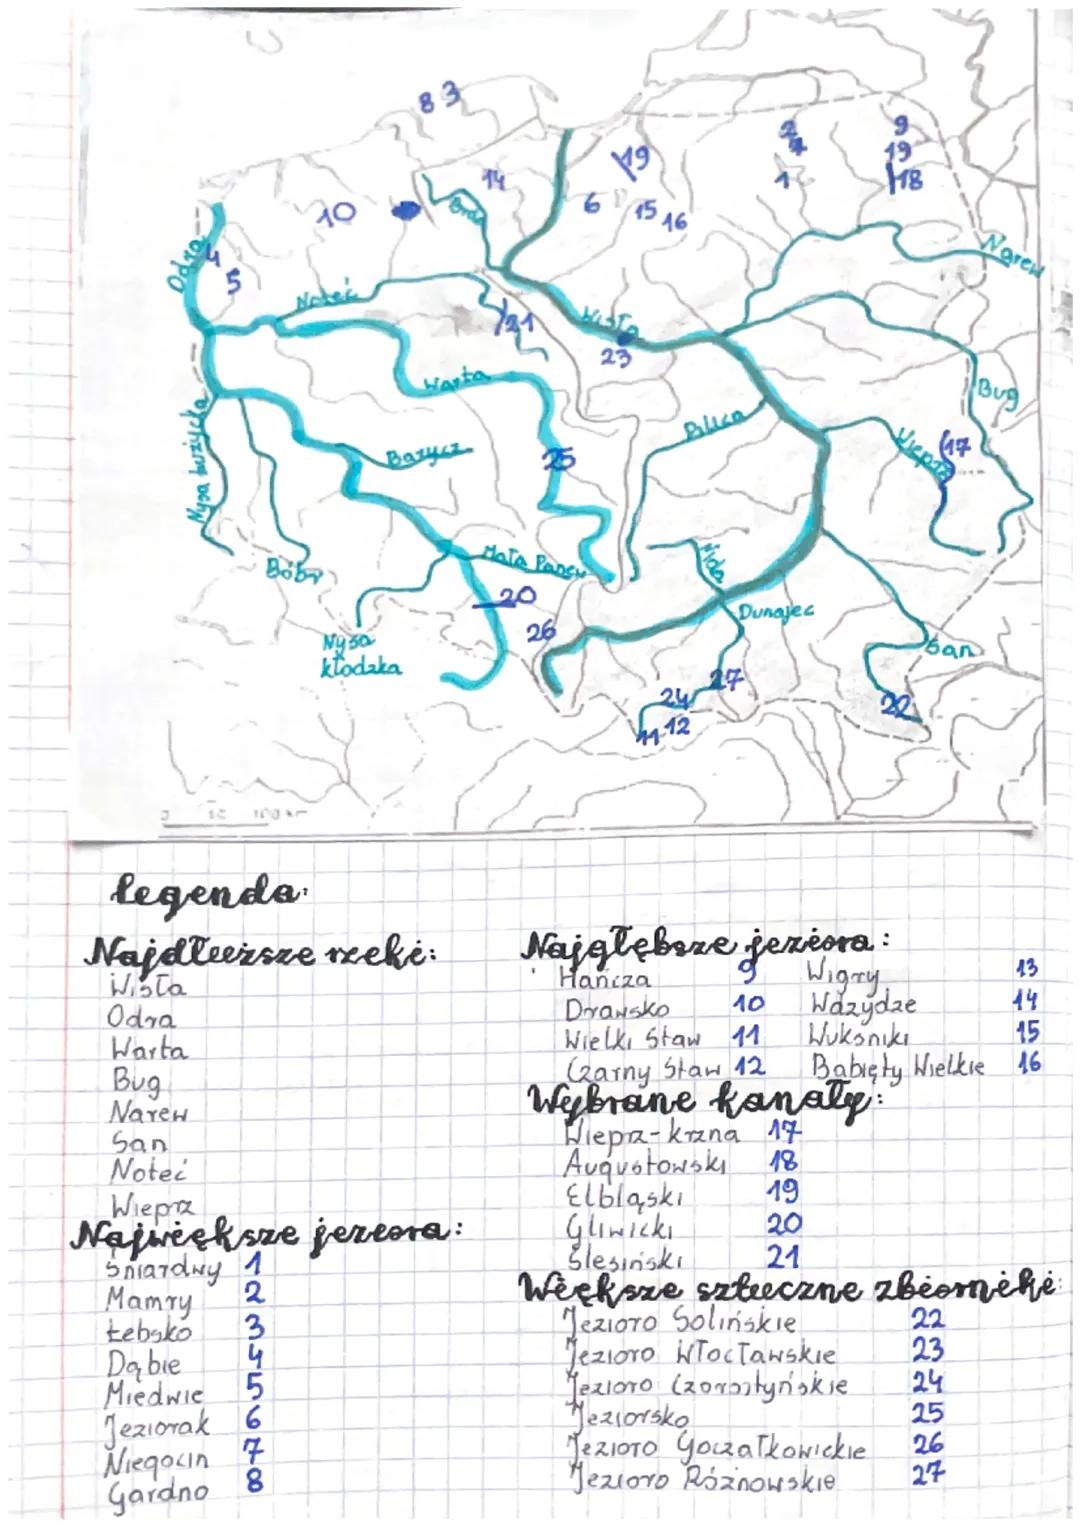 8 3
2
7
1
9
19
18
19
14
10
6
15
16
Brda
Narew
Odra
4
5
Noteć
21
Wisła
23
Warta
Pilica
Bug
Wieprz
17
Nysa Łużycka
Barycz
25
Bóbr
Mała Panew
Nida
20
26
Dunajec
Nysa
kłodzka
San
27
24
22
11 12
0 50 100 km
Legenda:
Najdłuższe rzeki:
Wisła
Odra
Warta
Bug
Narew
San
Noteć
Wieprz
Największe jeziora:
Śniardwy 1
Mamry 2
Łebsko 3
Dąbie 4
Miedwie 5
Jeziorak 6
Niegocin 7
Gardno 8
Najgłębsze jeziora:
Hańcza 9 Wigry 13
Drawsko 10 Wdzydze 14
Wielki Staw 11 Wuksniki 15
Czarny Staw 12 Babięty Wielkie 16
Wybrane kanały:
Wieprz-krzna 17
Augustowski 18
Elbląski 19
Gliwicki 20
Ślesiński 21
Większe sztuczne zbiorniki:
Jezioro Solińskie 22
Jezioro Włocławskie 23
Jezioro Czorsztyńskie 24
Jeziorsko 25
Jezioro Goczałkowickie 26
Jezioro Rożnowskie 27